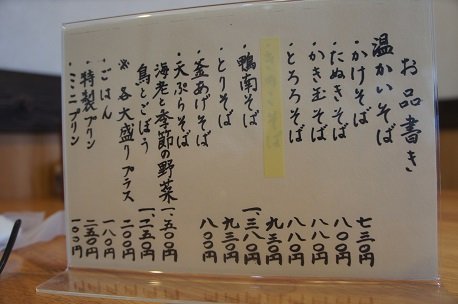 お品書き
温かいそば
・かけそば 七三〇円
・たぬきそば 八〇〇円
・かき玉そば 八八〇円
・とろろそば 八八〇円
九三〇円
・鴨南そば 一、三八〇円
・とりそば 九三〇円
・釜あげそば 八〇〇円
・天ぷらそば
海老と季節の野菜 一、五〇〇円
鳥とごぼう 一、二五〇円
※各大盛りプラス 二〇〇円
・ごはん 一八〇円
・特製プリン 二五〇円
・ミニプリン 一〇〇円